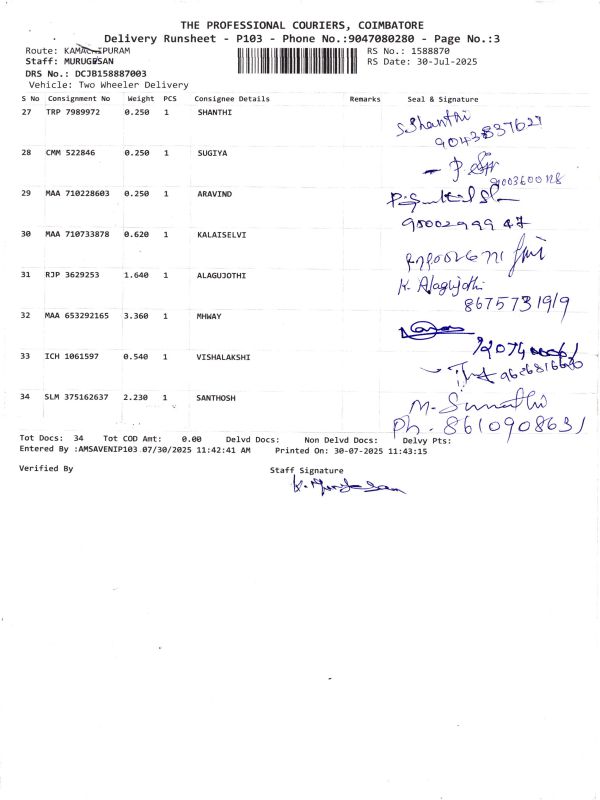 THE PROFESSIONAL COURIERS, COIMBATORE
Delivery Runsheet - P103 - Phone No.:9047080280 - Page No.:3
Route: KAMACHIPURAM RS No.: 1588870
Staff: MURUGESAN RS Date: 30-Jul-2025
DRS No.: DCJB158887003
Vehicle: Two Wheeler Delivery
S No Consignment No Weight PCS Consignee Details Remarks Seal & Signature
27 TRP 7989972 0.250 1 SHANTHI S.Shanthi
9043837627
28 CMM 522846 0.250 1 SUGIYA
9003600128
29 MAA 710228603 0.250 1 ARAVIND
9500299947
30 MAA 710733878 0.620 1 KALAISELVI
31 RJP 3629253 1.640 1 ALAGUJOTHI K. Alagujothi
8675731919
32 MAA 653292165 3.360 1 MHWAY
33 ICH 1061597 0.540 1 VISHALAKSHI
34 SLM 375162637 2.230 1 SANTHOSH M. Sumathi
Ph. 8610908631
Tot Docs: 34 Tot COD Amt: 0.00 Delvd Docs: Non Delvd Docs: Delvy Pts:
Entered By :AMSAVENIP103 07/30/2025 11:42:41 AM Printed On: 30-07-2025 11:43:15
Verified By Staff Signature
K. Murugesan